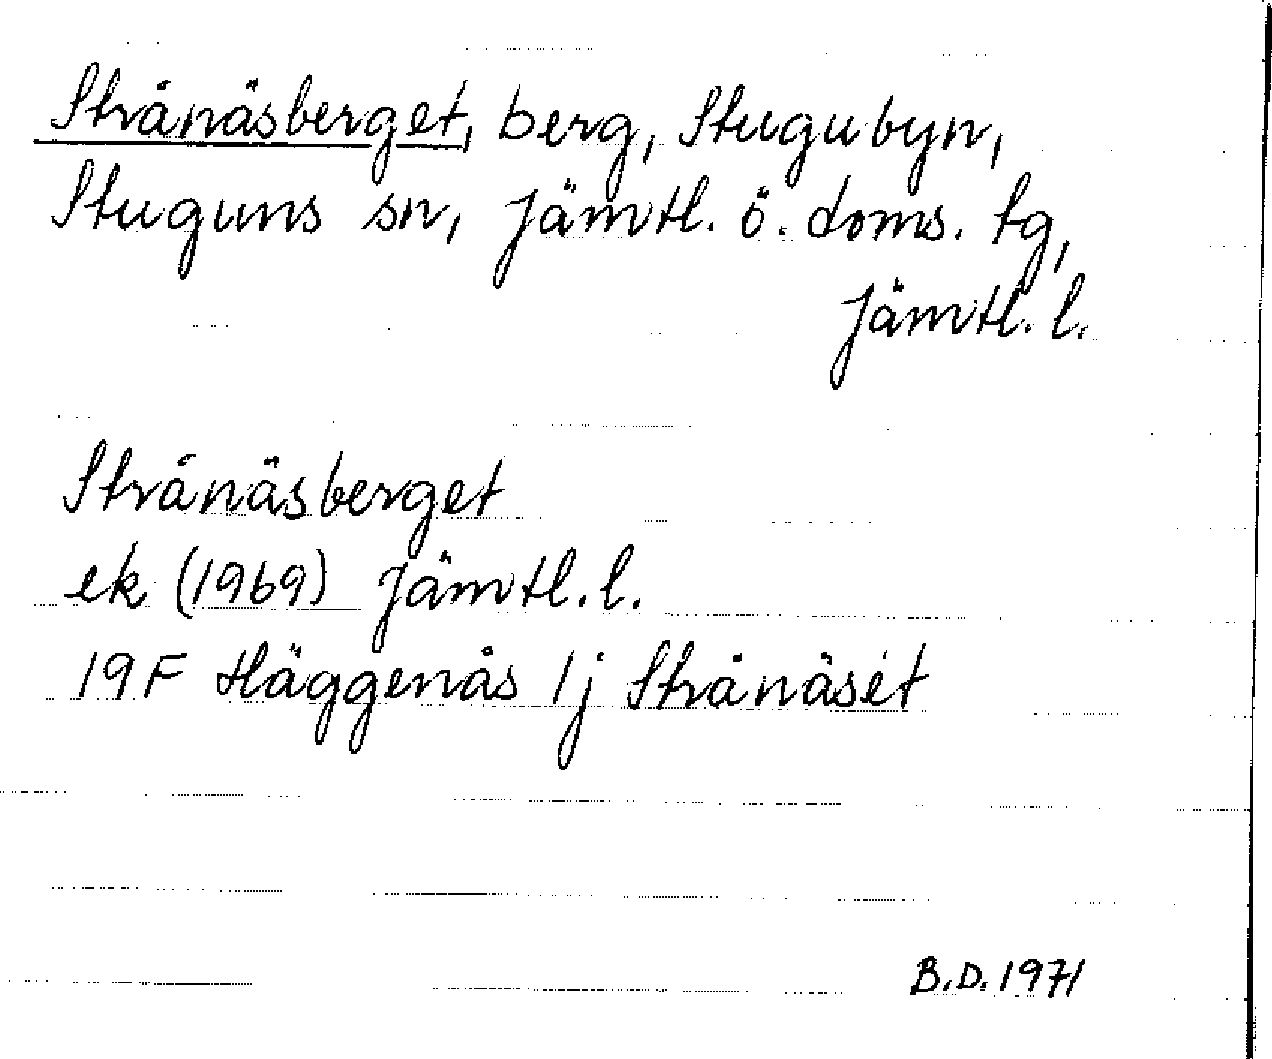 Strånäsberget, berg, Stugubyn,
Stuguns sn, Jämtl. ö. doms. tg,
Jämtl. l.
Strånäsberget
ek (1969) Jämtl. l.
19F Häggenås 1j Strånäset
B.D. 1971